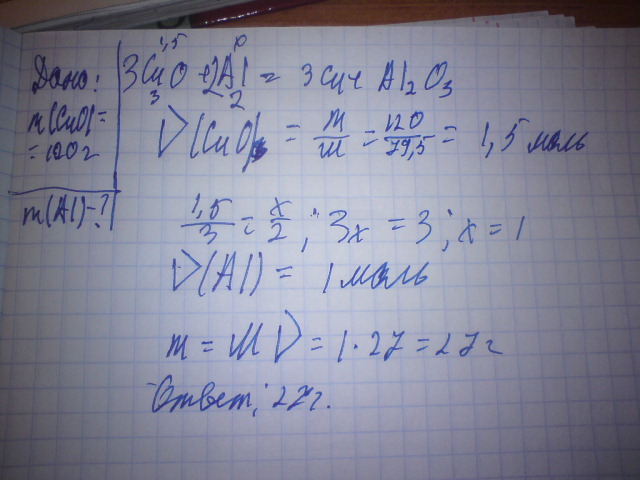 Дано:
m(CuO)=
=120г
m(Al)-?
1,5 x
3CuO + 2Al = 3Cu + Al2O3
3 2
ν(CuO) = m/M = 120/79,5 = 1,5 моль
1,5/3 = x/2 ; 3x = 3 ; x = 1
ν(Al) = 1 моль
m = Mν = 1·27 = 27г
Ответ: 27г.